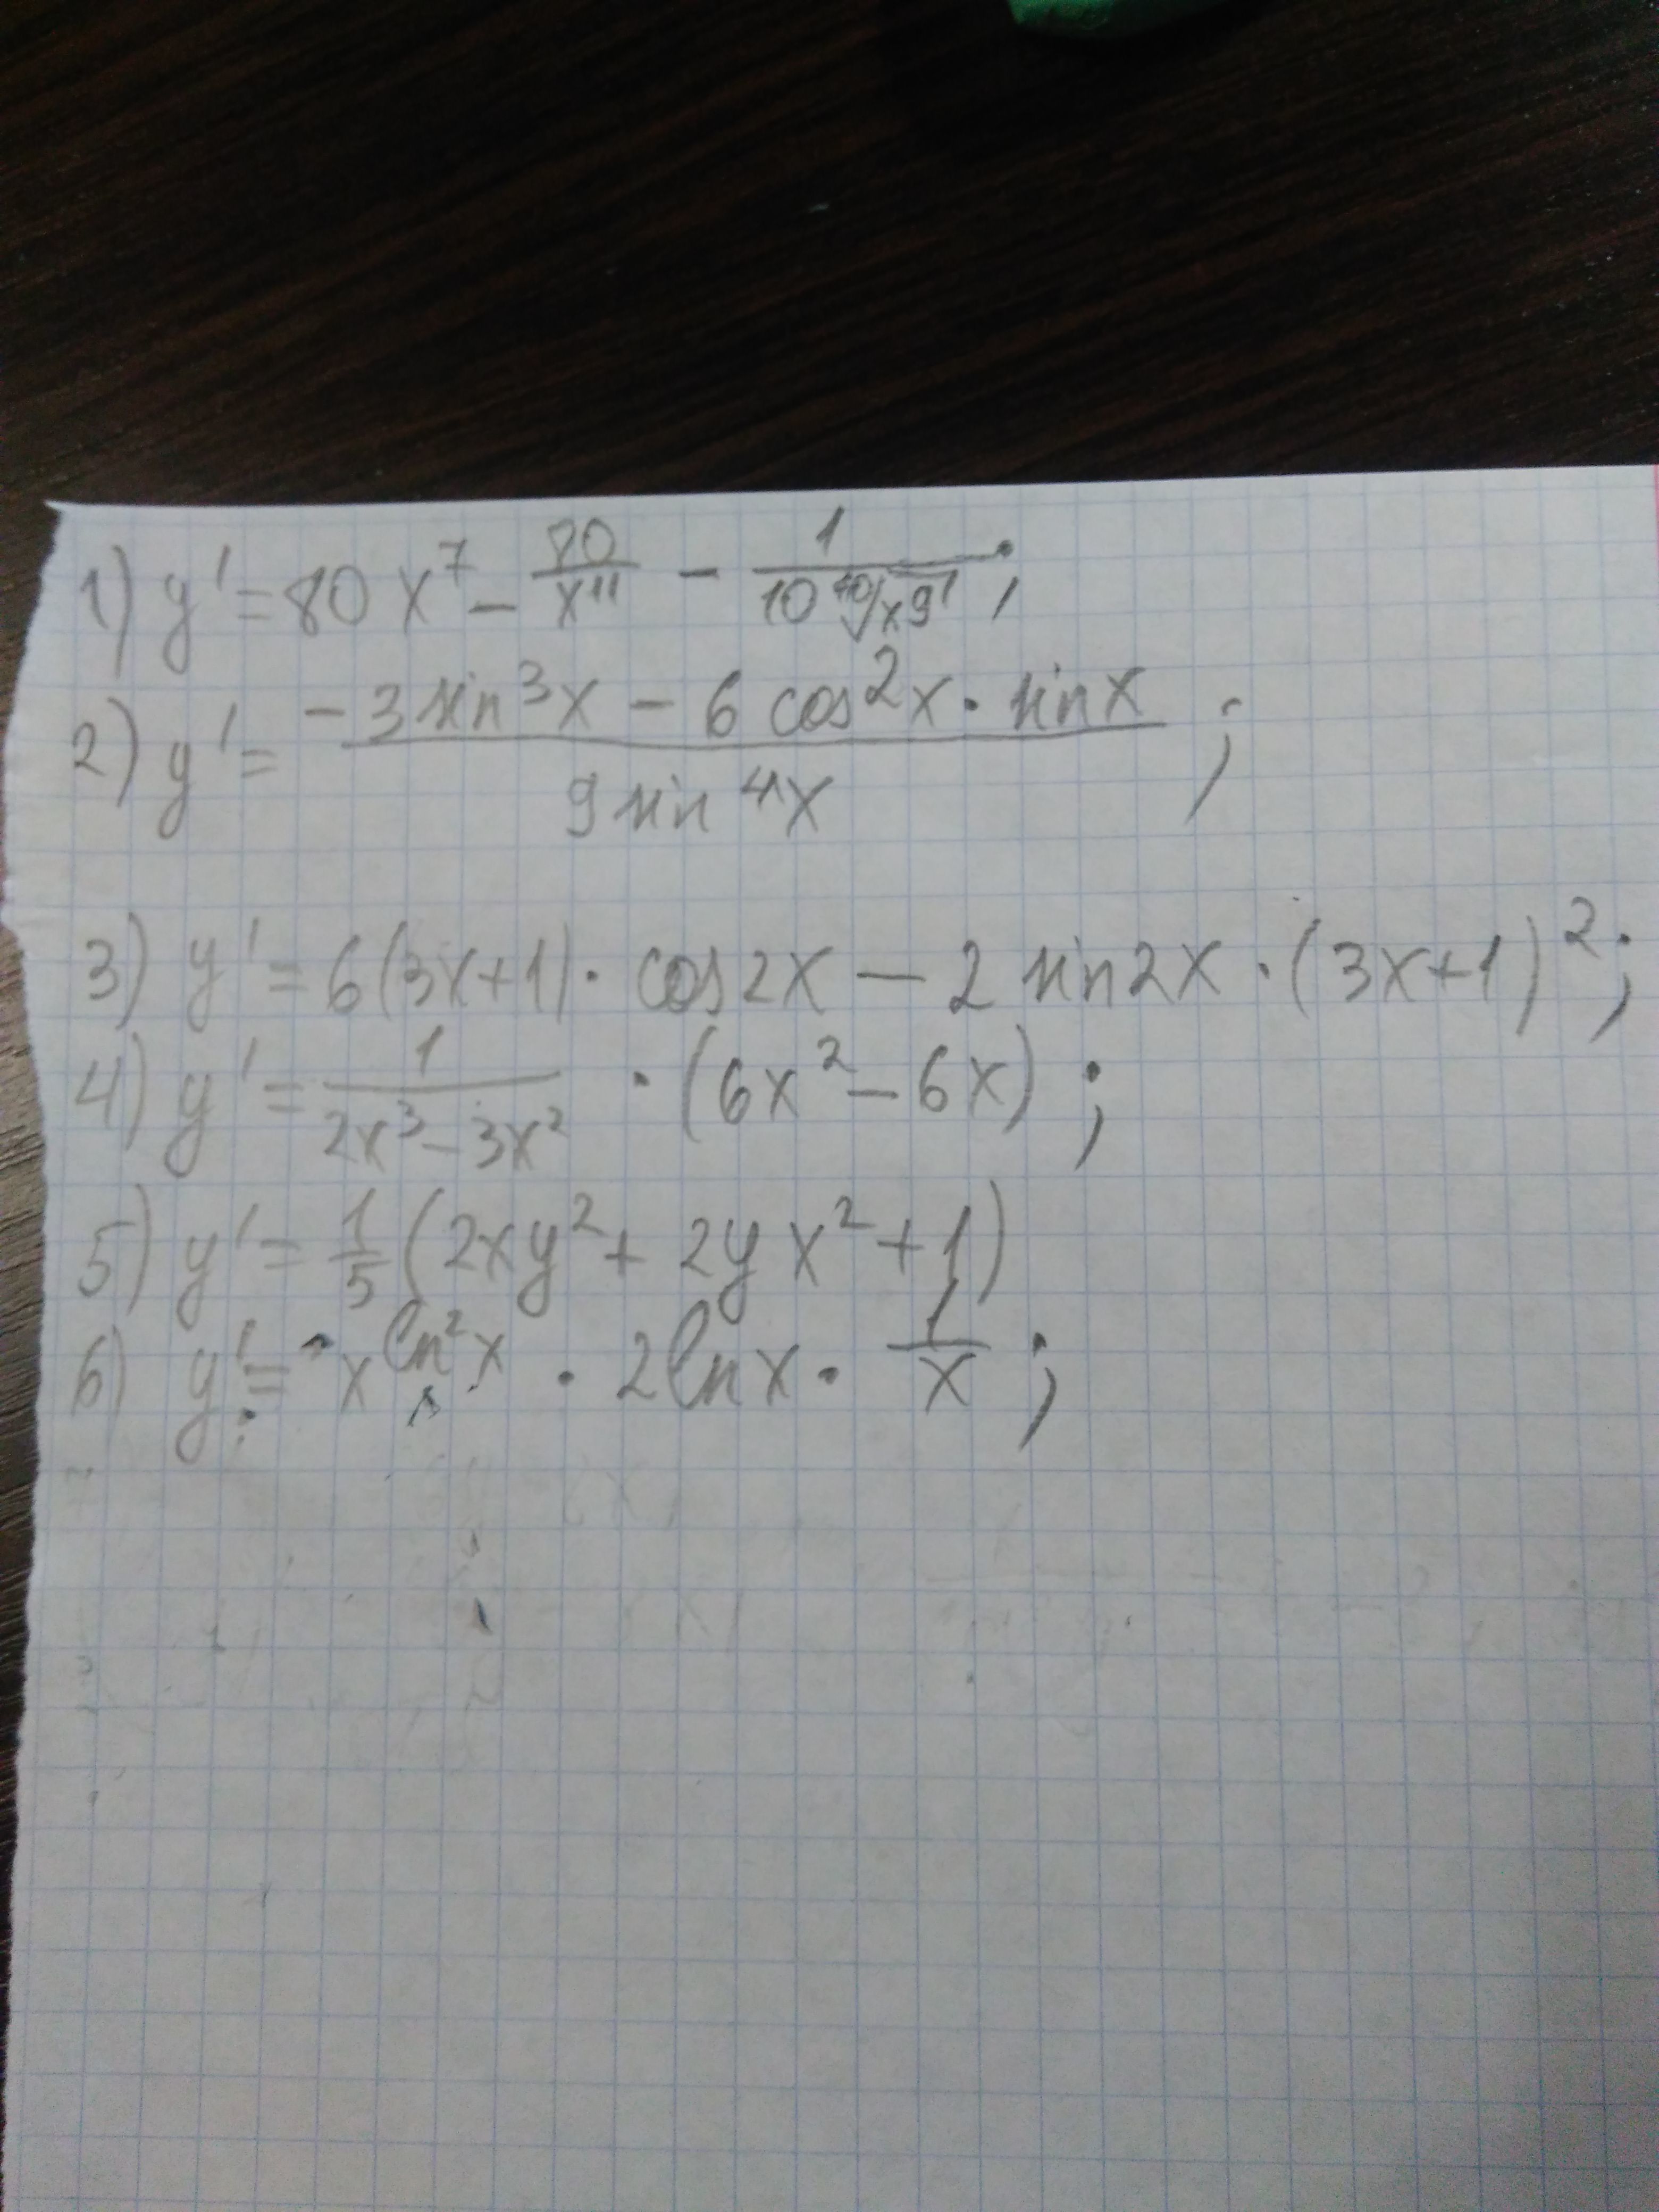 1) y' = 80x⁷ - 80/x¹¹ - 1/(10 ¹⁰√x⁹);
2) y' = (-3 sin³x - 6 cos²x · sin x)/(9 sin⁴x);
3) y' = 6(3x+1) · cos2x - 2 sin2x · (3x+1)²;
4) y' = 1/(2x³-3x²) · (6x²-6x);
5) y' = 1/5 (2xy² + 2yx² + 1)
6) y' = x^(ln²x) · 2lnx · 1/x;